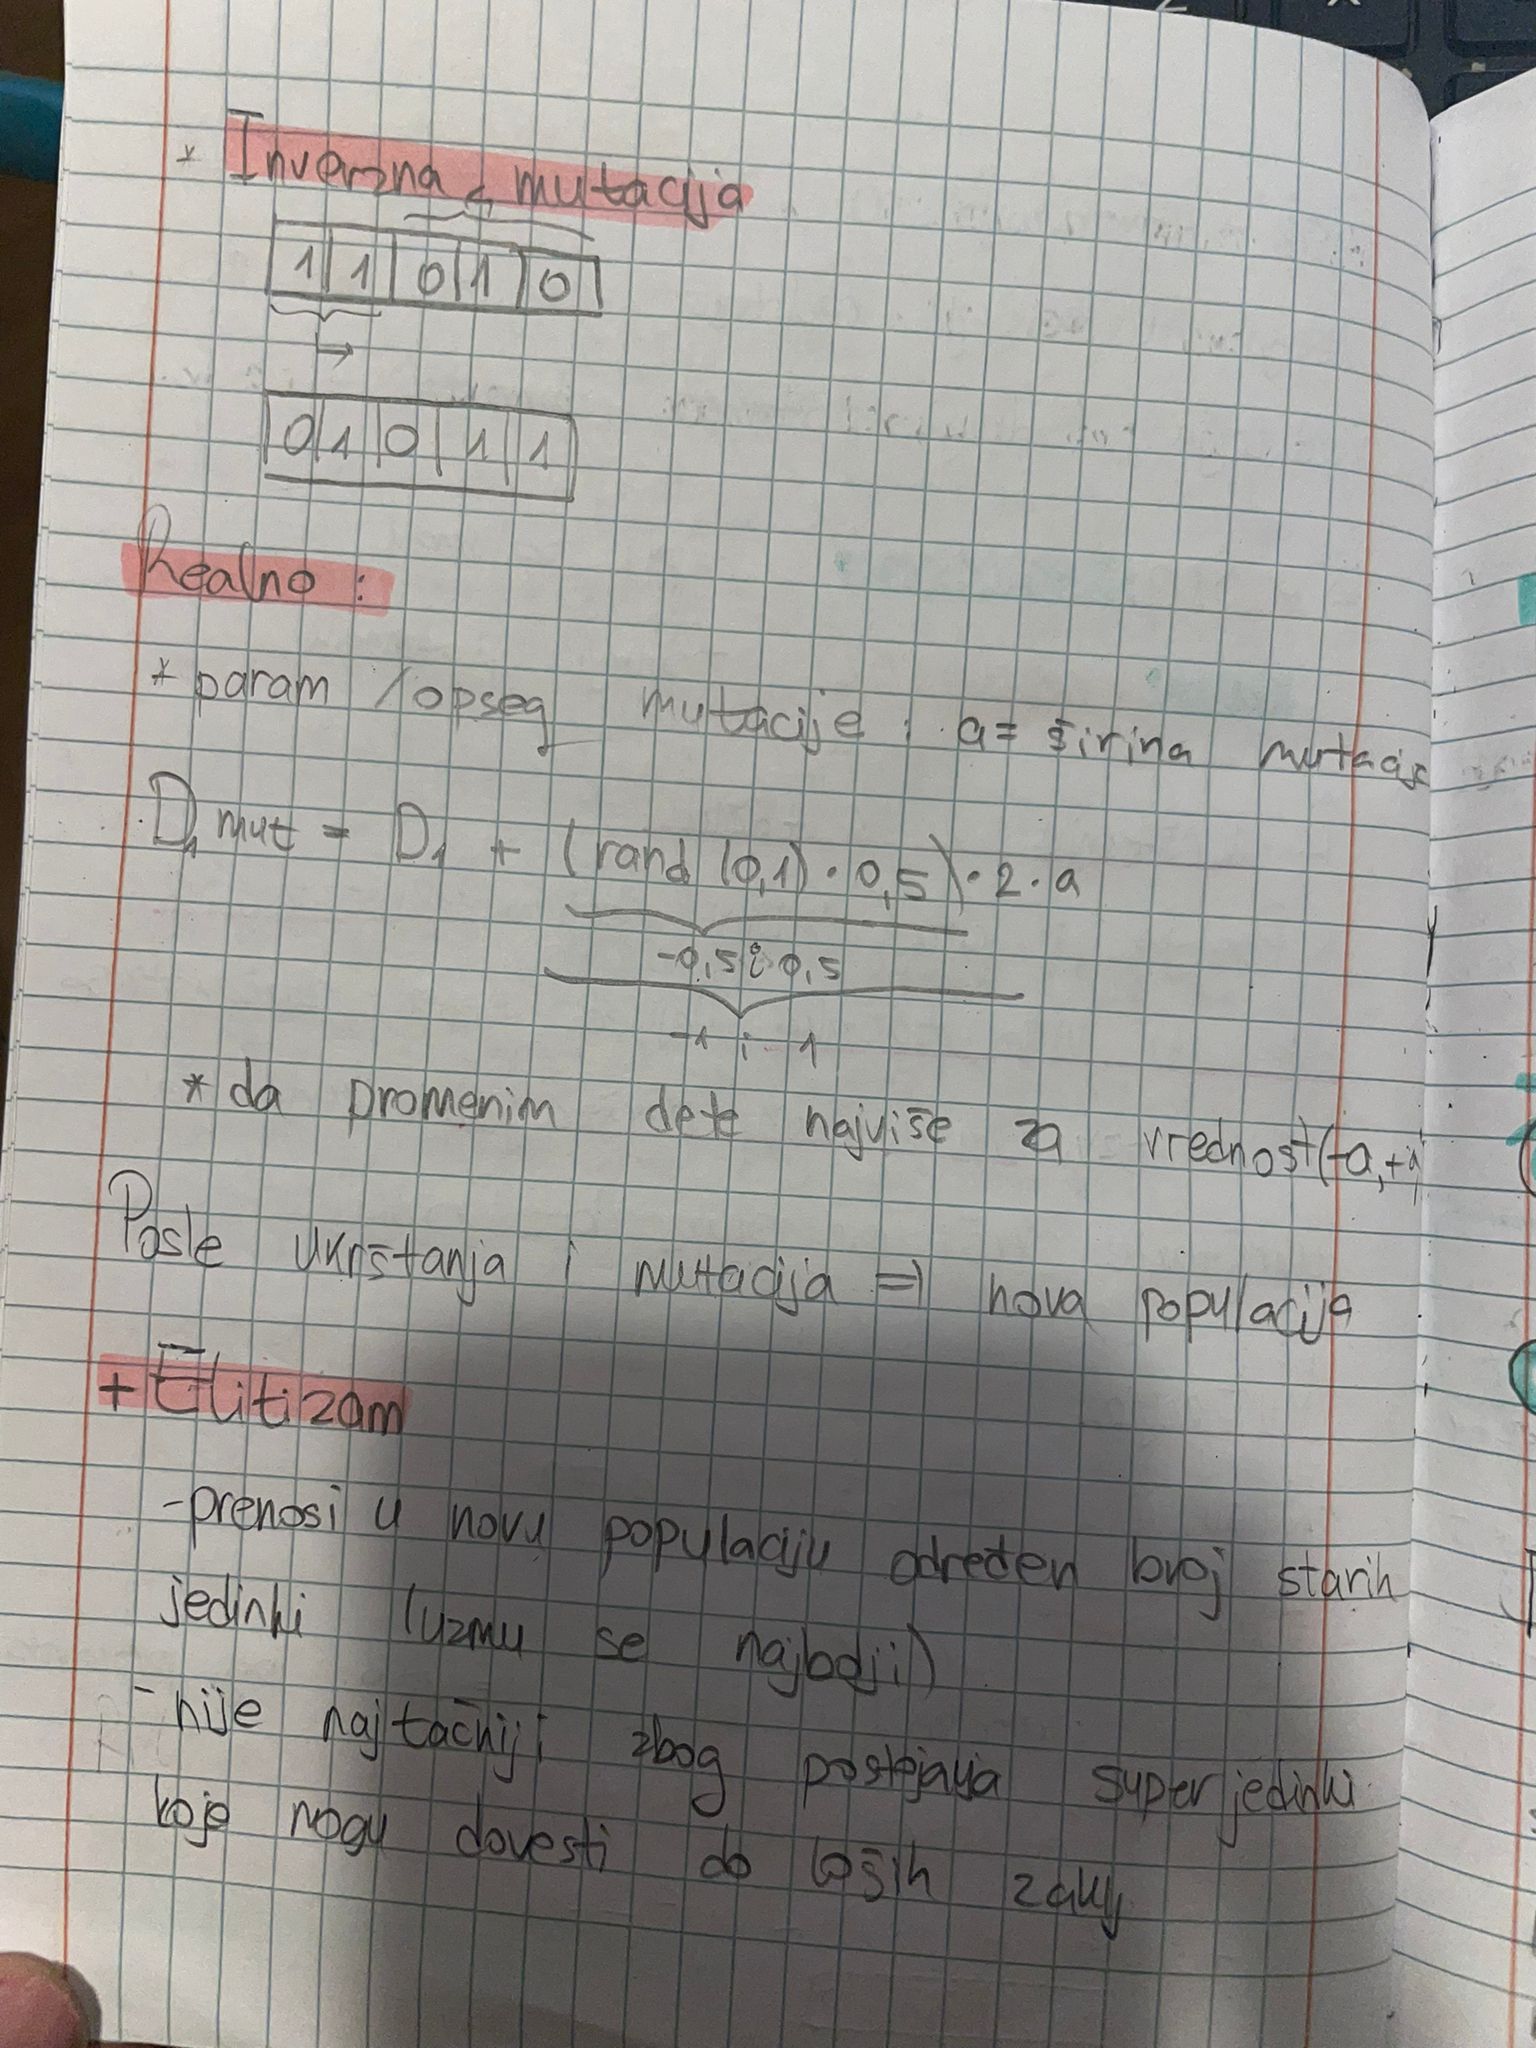 * Inverzna mutacija
1 1 0 1 0
0 1 0 1 1
Realno :
* param / opseg mutacije : a = širina mutacije
D₁ mut = D₁ + (rand (0,1) · 0,5) · 2 · a
-0,5 i 0,5
-1 i 1
* da promenim dete najviše za vrednost (-a, +a)
Posle ukrštanja i mutacija => nova populacija
+ Elitizam
- prenosi u novu populaciju određen broj starih
jedinki (uzmu se najbolji)
- nije najtačniji zbog postojanja superjedinki
koje mogu dovesti do loših zaklj